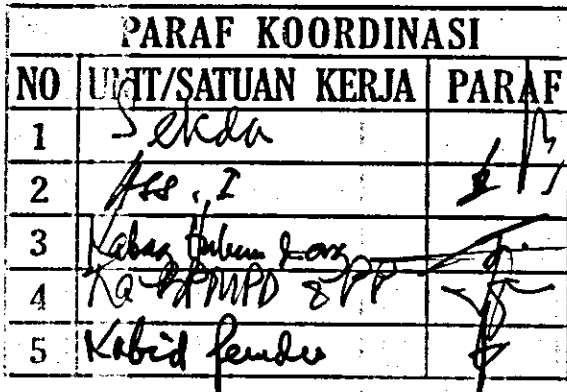 PARAF KOORDINASI
NO UNIT/SATUAN KERJA PARAF
1 Sekda
2 Ass. I
3 Kabag Hukum & Org
4 Ka BPMPD & PP
5 Kabid Pemdes